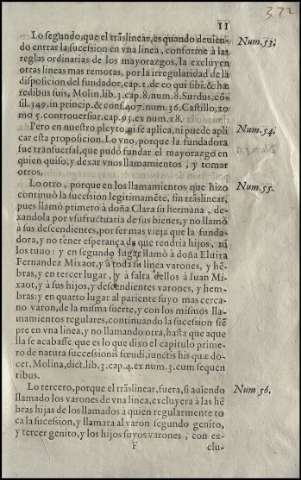 11
372
Lo segundo, que el trãslinear, es quando deuien-
do entrar la sucession en vna linea, conforme à las
reglas ordinarias de los mayorazgos, la excluyen
otras lineas mas remotas, por la irregularidad de la
disposicion del fundador, cap. 1. de eo qui sibi, & hæ
redibus suis, Molin. lib. 3. cap. 8. num. 8. Surdus, cõ-
sil. 349. in princip. & cons. 407. num. 36. Castillo, to-
mo 5. controuersiar. cap. 93. ex num. 18.
Num. 53.
Pero en nuestro pleyto, ni se aplica, ni puede apli
car esta proposicion. Lo vno, porque la fundadora
fue transuersal, que pudo fundar el mayorazgo en
quien quiso, y dexar vnos llamamientos, y tomar
otros.
Num. 54.
Lo otro, porque en los llamamientos que hizo
continuò la sucession legitimamẽte, sin trãslinear,
pues llamò primero à doña Clara su hermana, de-
xandola por vsufructuaria de sus bienes, y no llamò
à sus descendientes, por ser mas vieja que la funda-
dora, y no tener esperança de que tendria hijos, ni
los tuuo: y en segundo lugar llamò à doña Eluira
Fernandez Mixaot, y à toda su linea varones, y hẽ-
bras; y en tercer lugar, y à falta dellos à Iuan Mi-
xaot, y à sus hijos, y descendientes varones, y hem-
bras; y en quarto lugar al pariente suyo mas cerca-
no varon, de la misma suerte, y con los mismos lla-
mamientos regulares, continuando la sucession siẽ
pre en vna linea, y no llamando otra, hasta que aque
lla se acabasse, que es lo que dixo el capitulo prime-
ro de natura successionis fœudi, iunctis his quæ do-
cet, Molina, dict. lib. 3. cap. 4. ex num. 5. cum sequen
ribus.
Num. 55.
Lo tercero, porque el trãslinear, fuera, si auiendo
llamado los varones de vna linea, excluyera à las hẽ
bras hijas de los llamados à quien regularmente to
ca la sucession, y llamara al varon segundo genito,
y tercer genito, y los hijos suyos varones, con ex-
Num. 56.
F
clu-